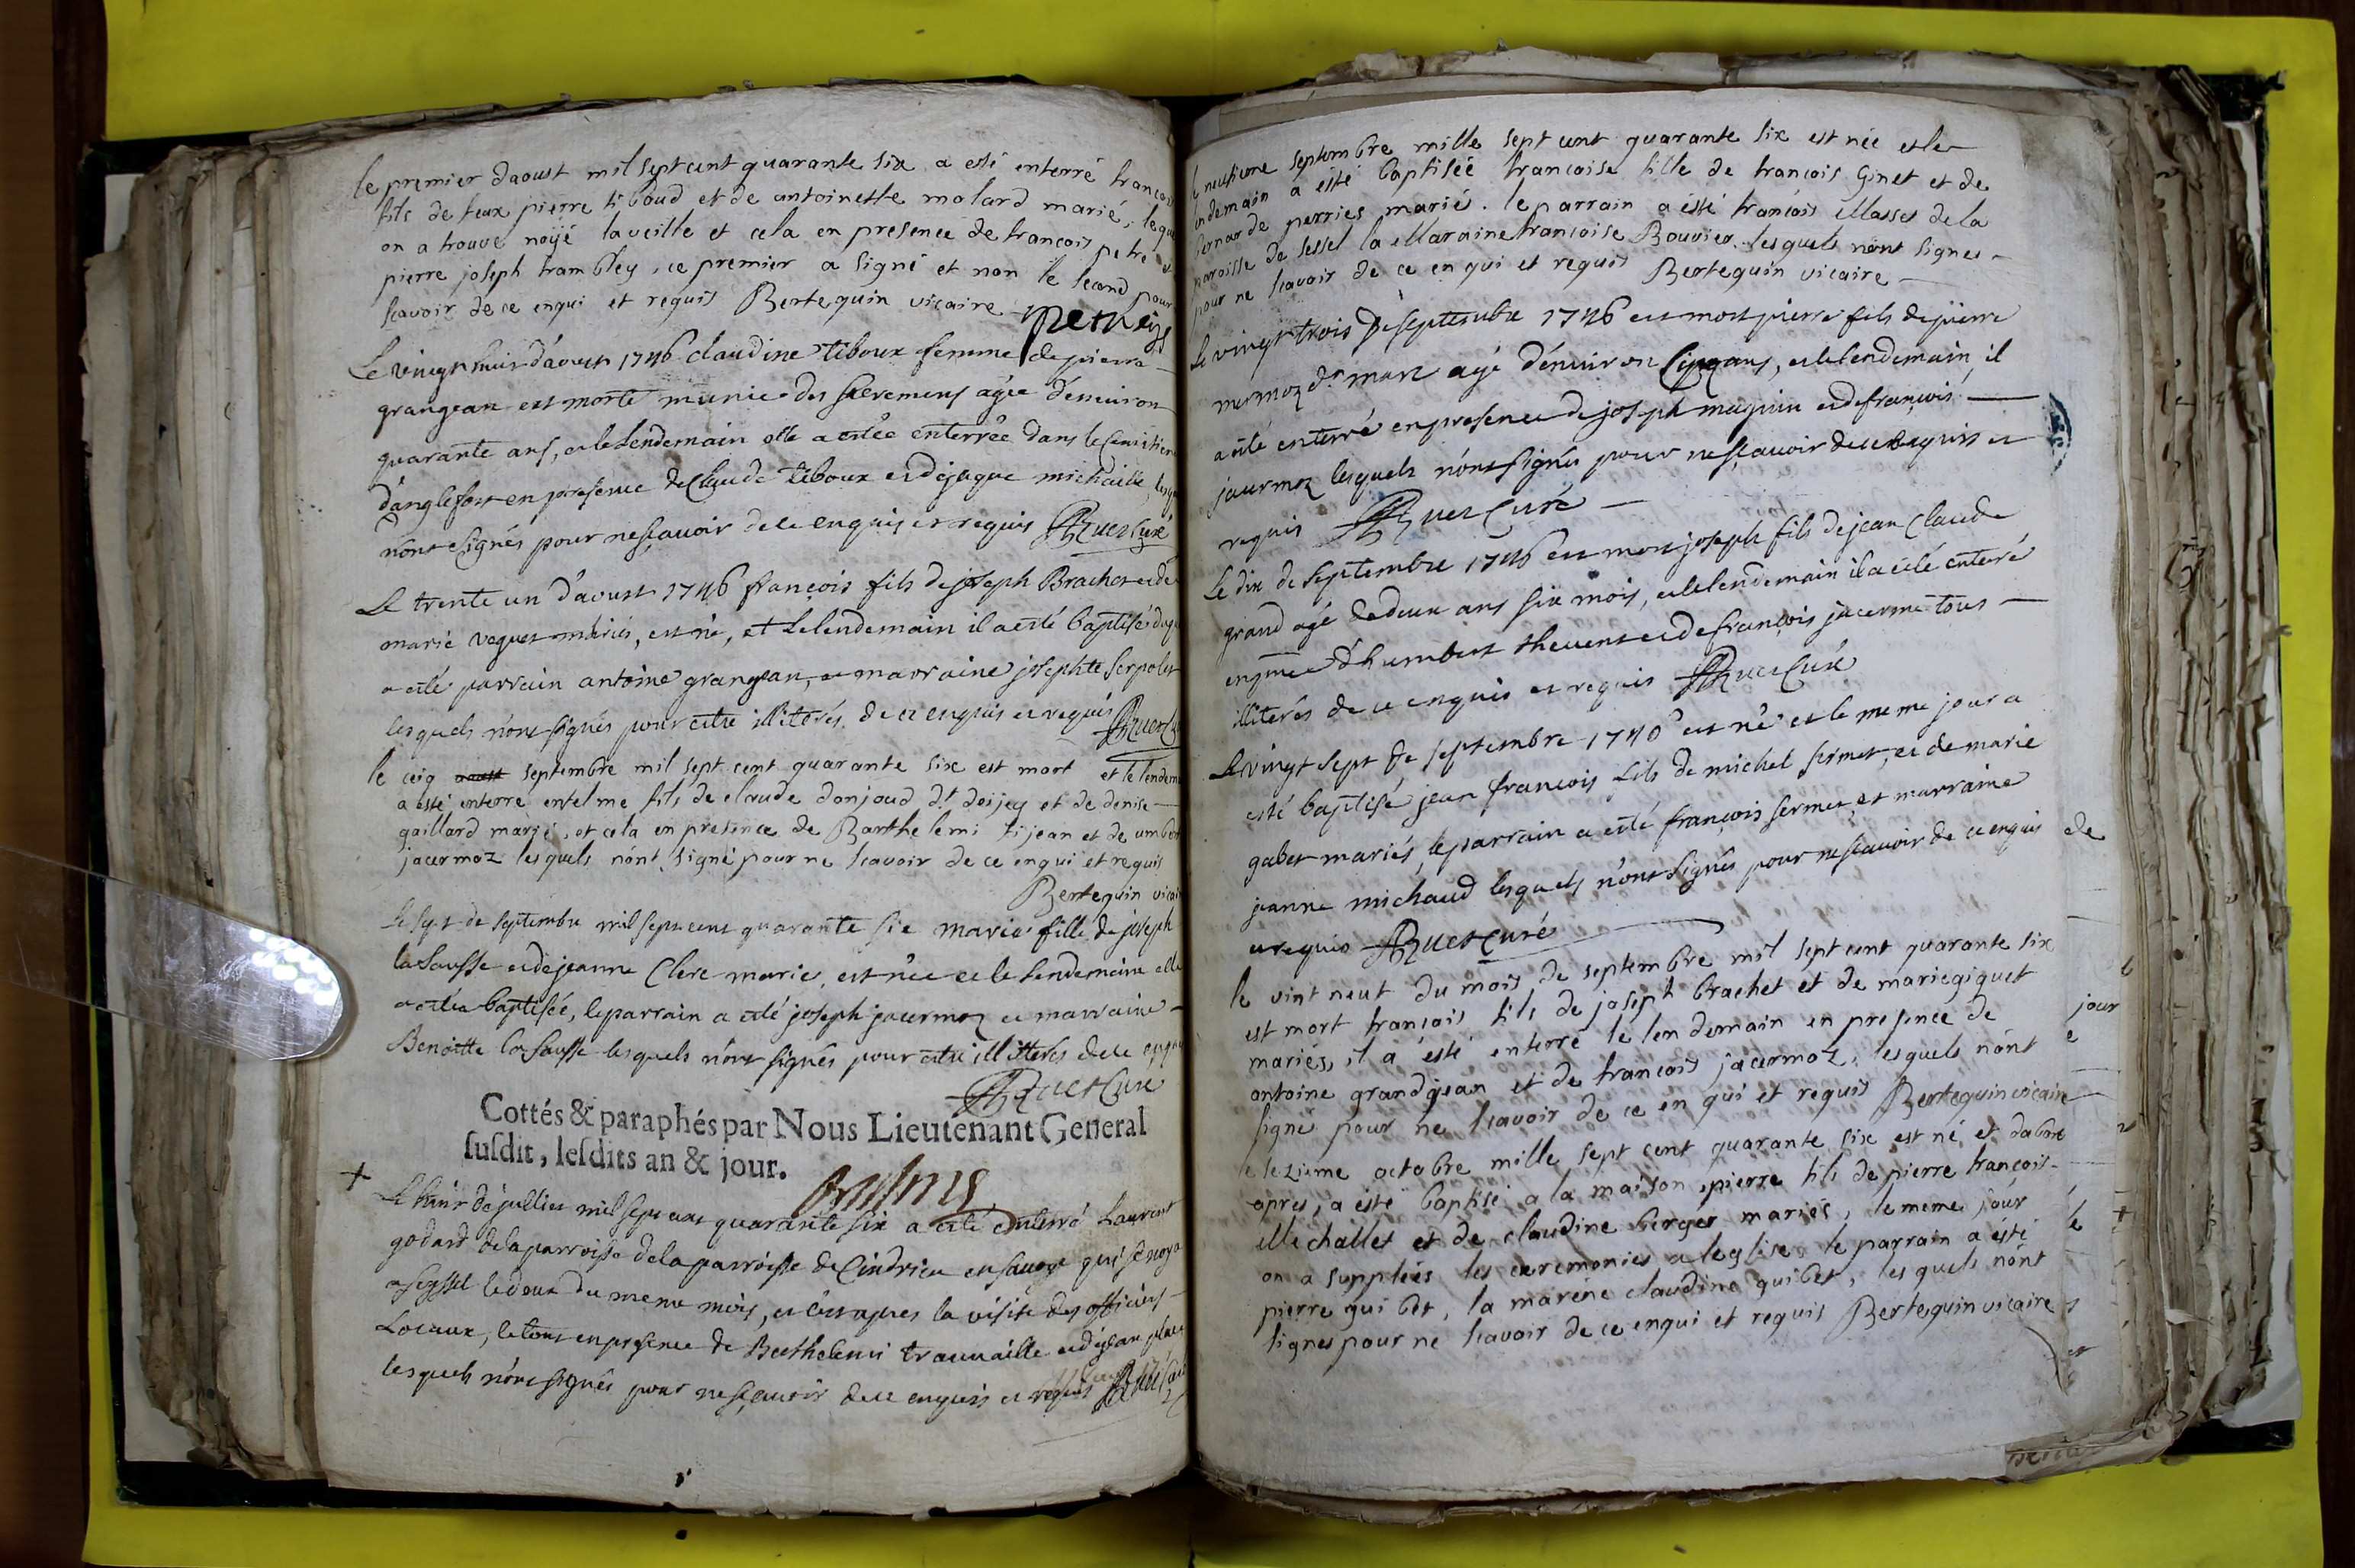 le premier daoust mil sept cent quarante six a esté enterré francois
fils de feux pierre tiboud et de antoinette molard marié, leque
on a trouvé noÿé laveille et cela en presence de francois petre et
pierre joseph trambley, ce premier a signé et non le second pour
scavoir de ce enqui et requis Bertequin vicaire
Le vingt huit d'aoust 1746 claudine tiboux femme de pierre
grangean est morte munie des sacremens agée d'environ
quarante ans, et le lendemain elle a estée enterrée dans le Cemistiere
d'anglefort en presence de Claude tiboux et de jaque michaille, lesq
n'ont signés pour nesçavoir de ce enquis et requis Curé
Le trente un d'aoust 1746 françois fils de joseph Brachet et de
marie veguet mariés, est né, et le lendemain il a esté baptisé duq
a esté parrain antoine grangean, et marraine josephte serpolet
lesquels n'ont signés pour estre illiterés, de ce enquis et requis
le ciq aoust septembre mil sept cent quarante six est mort et le lendem
a esté enterré entelme fils de claude donjoud dt doijey et de denise
gaillard marié, et cela en presence de Barthelemi tijean et de umbert
jacermoz lesquels nónt signé pour ne scavoir de ce enqui et requis
Bertequin vicai
Le sept de septembre mil sept cent quarante six marie fille de joseph
la sausse et de jeanne Clerc marié, est née et le lendemain elle
a estée baptisée, le parrain a esté joseph jacermoz et marraine
Benoitte la sausse lesquels n'ont signés pour estre illitterés de ce enquis
Curé
Cottés & paraphés par Nous Lieutenant General
susdit, lesdits an & jour.
+ Le huit de juillet mil sept cent quarante six a esté enterré Laurent
godard de la parroisse de la parroisse de Cindrieu en savoye qui se noya
a seyssel le deux du meme mois, et c'est apres la visite des officiers
Locaux, le tout en presence de Berthelemi travaille et de jean
lesquels n'ont signés pour nesçavoir de ce enquis et requis
le neufieme septembre mille sept cent quarante six est née et le
lendemain a esté baptisée francoise fille de francois Ginet et de
bernarde perries mariés. le parrain a ésté francois Masset de la
paroisse de sessel la Maraine francoise Bouvier. lesquels nónt signes
pour ne scavoir de ce enqui et requis Bertequin vicaire
Le vingt trois de septembre 1746 est mort pierre fils de pierre
mermoz dt marc agé d'environ Cinq ans, et le lendemain, il
a esté enterré en presence de joseph maguin et de françois
jacermoz lesquels n'ont signés pour nesçavoir de ce requis et
requis Curé
Le dix de septembre 1746 est mort joseph fils de jean Claude
grand agé de deux ans six mois, et le lendemain il a esté enteré
en pnce d'humbert thevenet et de françois jacerme tous
illiterés de ce enquis et requis Curé
Le vingt sept de septembre 1746 est né et le meme jour a
esté baptisé jean françois fils de michel sermet, et de marie
gabet mariés, le parrain a esté françois sermet, et marraine
jeanne michaud lesquels n'ont signés pour nesçavoir de ce enquis
et requis Curé
le vint neuf du mois de septembre mil sept cent quarante six
est mort francois fils de joseph brachet et de marie giguet
mariés, il a ésté enterré le lendemain en presence de
antoine grandgean et de francois jacermoz, lesquels nónt
signé pour ne scavoir de ce enqui et requis Bertequin vicaire
le sezieme octobre mille sept cent quarante six est né et dabord
apres, a esté baptisé a la maison, pierre fils de pierre françois
Michallet et de claudine berger mariés, le meme jour
on a suppleés les ceremonies a leglise le parrain a ésté
pierre guibet, la marene claudine guibet, lesquels nónt
signes pour ne scavoir de ce enqui et requis Bertequin vicaire
de
jour
e
le